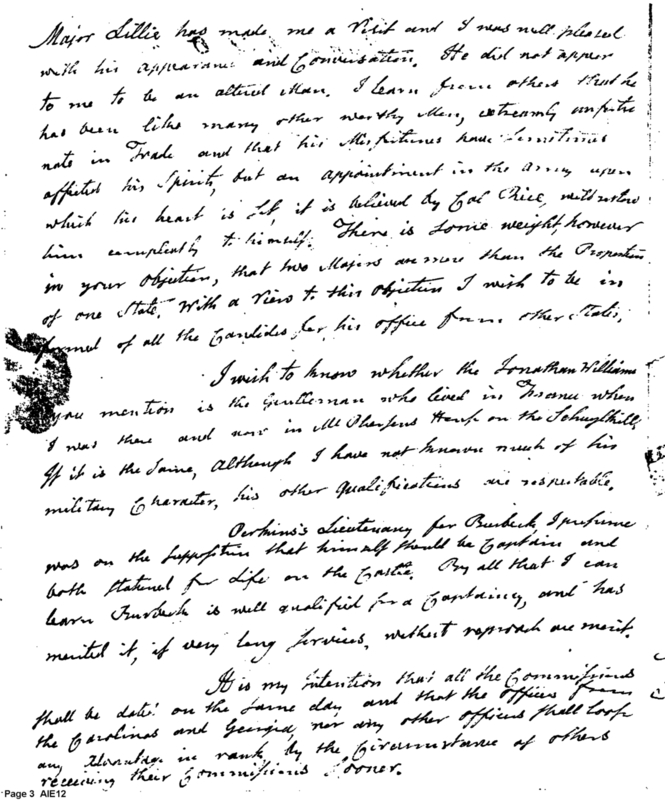 Major Lillie has made me a Visit and I was well pleased
with his appearance and Conversation. He did not appear
to me to be an altered Man. I learn from others that he
has been like many other worthy Men, extreamly unfortu
nate in Trade and that his Misfortunes have Sometimes
affected his Spirits, but an appointment in the Army upon
which his heart is Set, it is believed by Col Rice, will restore
him compleatly to himself. There is Some weight, however
in your Objection, that two Majors are more than the Proportion
of one State. With a View to this Objection I wish to be in
formed of all the Candidates for his office from other States.
I wish to know whether the Jonathan Williams
you mention is the Gentleman who lived in France when
I was there and now in Mr House on the Schuylkill,
If it is the Same, although I have not known much of his
military Character, his other Qualifications are respectable.
Perkins's Lieutenancy for Burbeck, I presume
was on the Supposition that himself should be Captain and
both stationed for Life on the Castle. By all that I can
learn Burbeck is well qualified for a Captaincy, and has
merited it, if very long Services, without reproach are merit.
It is my Intention that all the Commissions
shall be dated on the same day and that the officers from
the Carolinas and Georgia, nor any other officers shall loose
any Advantage in rank by the Circumstance of others
receiving their Commissions Sooner.
Page 3 AIE12